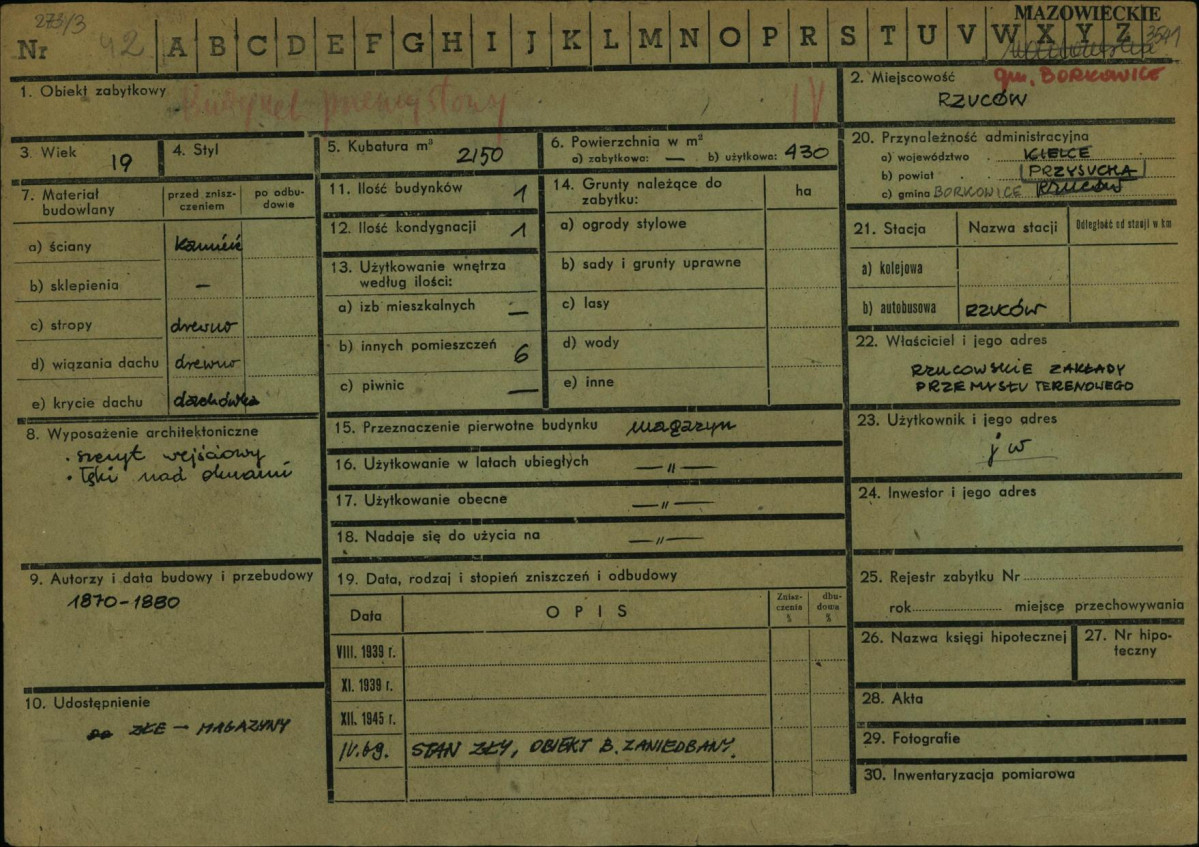 273/3
Nr 42 A B C D E F G H I J K L M N O P R S T U V W X Y Z
MAZOWIECKIE
3541
1. Obiekt zabytkowy Budynek przemysłowy IV
2. Miejscowość gm. BORKOWICE
RZUCÓW
3. Wiek 19
4. Styl
5. Kubatura m³ 2150
6. Powierzchnia w m²
a) zabytkowa: — b) użytkowa: 430
20. Przynależność administracyjna
a) województwo KIELCE
b) powiat PRZYSUCHA
c) gmina BORKOWICE RZUCÓW
7. Materiał budowlany
przed zniszczeniem
po odbudowie
a) ściany kamień
b) sklepienia —
c) stropy drewno
d) wiązania dachu drewno
e) krycie dachu dachówka
11. Ilość budynków 1
12. Ilość kondygnacji 1
13. Użytkowanie wnętrza
według ilości:
a) izb mieszkalnych —
b) innych pomieszczeń 6
c) piwnic —
14. Grunty należące do
zabytku:
ha
a) ogrody stylowe
b) sady i grunty uprawne
c) lasy
d) wody
e) inne
21. Stacja Nazwa stacji Odległość od stacji w km
a) kolejowa
b) autobusowa RZUCÓW
22. Właściciel i jego adres
RZUCOWSKIE ZAKŁADY
PRZEMYSŁU TERENOWEGO
8. Wyposażenie architektoniczne
· szczyt wejściowy
· łęki nad oknami
15. Przeznaczenie pierwotne budynku magazyn
16. Użytkowanie w latach ubiegłych — „ —
17. Użytkowanie obecne — „ —
18. Nadaje się do użycia na — „ —
23. Użytkownik i jego adres
j w
24. Inwestor i jego adres
9. Autorzy i data budowy i przebudowy
1870-1880
19. Data, rodzaj i stopień zniszczeń i odbudowy
Data OPIS Zniszczenia % dbudowa %
VIII. 1939 r.
XI. 1939 r.
XII. 1945 r.
IV.69. STAN ZŁY, OBIEKT B. ZANIEDBANY.
10. Udostępnienie
ZŁE — MAGAZYNY
25. Rejestr zabytku Nr
rok miejsce przechowywania
26. Nazwa księgi hipotecznej
27. Nr hipoteczny
28. Akta
29. Fotografie
30. Inwentaryzacja pomiarowa